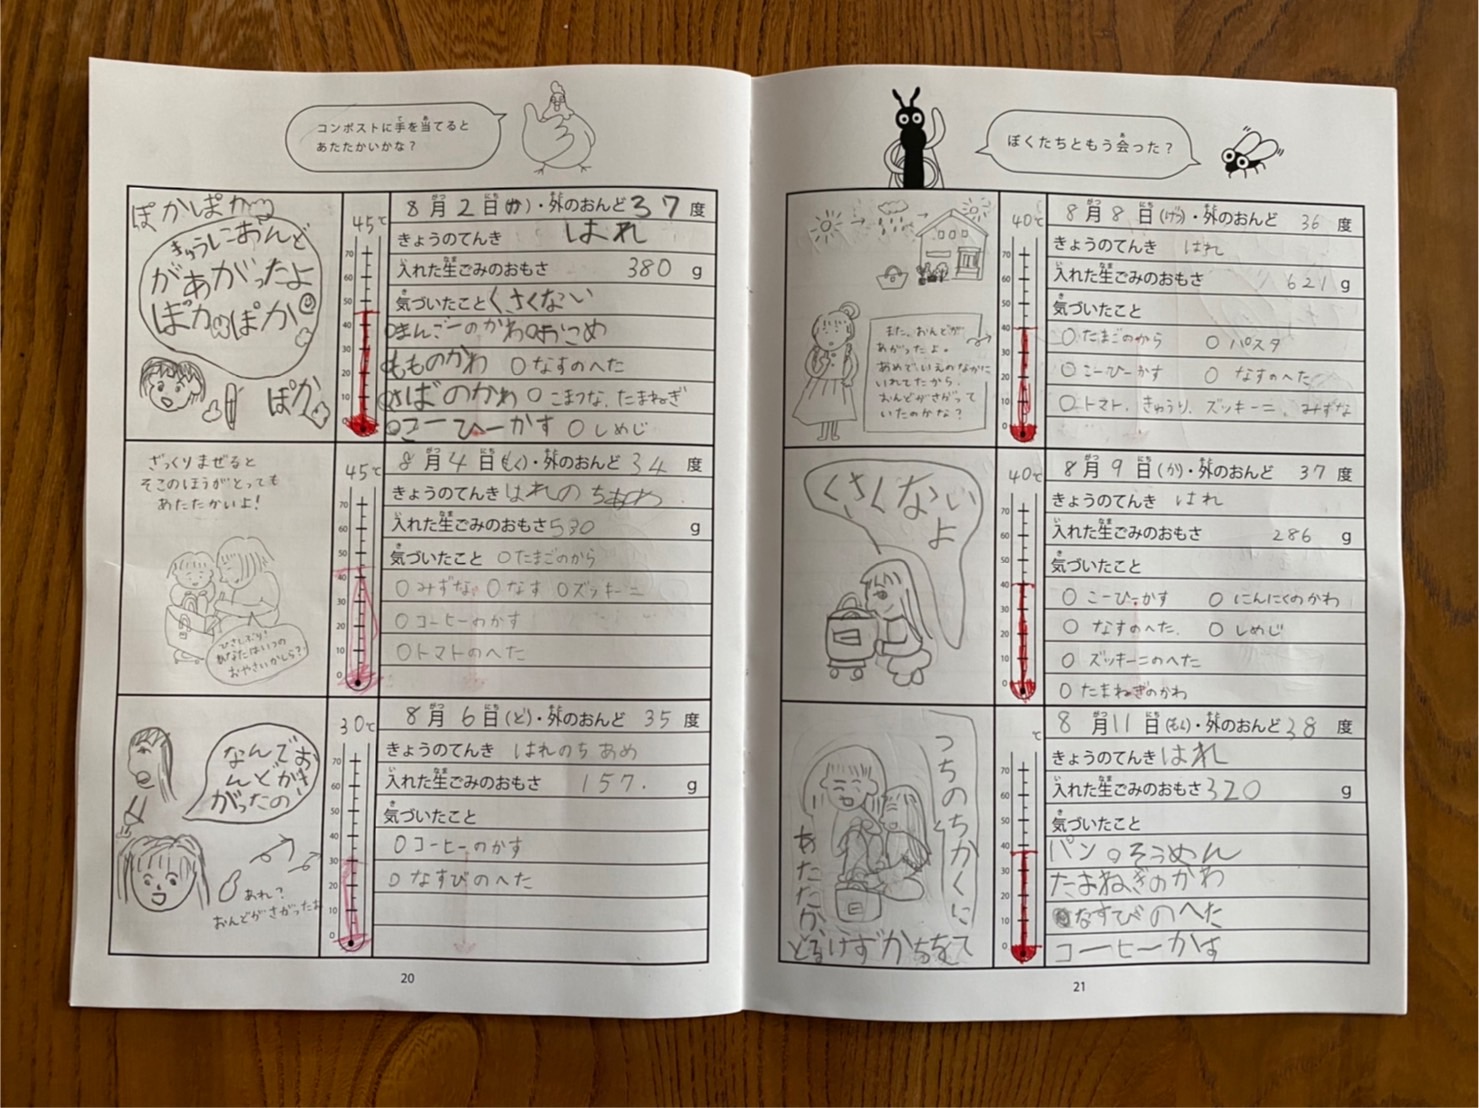 コンポストに手を当てると
あたたかいかな？
ぽかぽか
きゅうにおんど
があがったよ
ぽかぽか
ぽか
45℃
8月2日(か)・外のおんど37度
きょうのてんき はれ
入れた生ごみのおもさ 380 g
気づいたこと くさくない
○まんごーのかわ○おこめ
○もものかわ ○なすのへた
○さばのかわ ○こまつな、たまねぎ
○こーひーかす ○しめじ
ざっくりまぜると
そこのほうがとっても
あたたかいよ！
ひさしぶり！
あなたはいつの
おやさいかしら？
45℃
8月4日(もく)・外のおんど34度
きょうのてんき はれのち
入れた生ごみのおもさ 530 g
気づいたこと ○たまごのから
○みずな ○なす ○ズッキーニ
○コーヒーのかす
○トマトのへた
なんでお
んどがさ
がったの
あれ？
おんどがさがったよ
30℃
8月6日(ど)・外のおんど35度
きょうのてんき はれのちあめ
入れた生ごみのおもさ 157. g
気づいたこと
○コーヒーのかす
○なすびのへた
20
ぼくたちともう会った？
また、おんどが
あがったよ。
あめでいえのなかに
いれてたから、
おんどがさがって
いたのかな？
40℃
8月8日(げつ)・外のおんど 36度
きょうのてんき はれ
入れた生ごみのおもさ 621 g
気づいたこと
○たまごのから ○パスタ
○こーひーかす ○なすのへた
○トマト、きゅうり、ズッキーニ、みずな
くさくない
よ
40℃
8月9日(か)・外のおんど 37度
きょうのてんき はれ
入れた生ごみのおもさ 286 g
気づいたこと
○こーひーかす ○にんにくのかわ
○なすのへた、 ○しめじ
○ズッキーニのへた
○たまねぎのかわ
つちのちかくに
てをちかずけるど
あたたか、
℃
8月11日(もく)・外のおんど38度
きょうのてんき はれ
入れた生ごみのおもさ 320 g
気づいたこと
パン○そうめん
たまねぎのかわ
なすびのへた
コーヒーかす
21